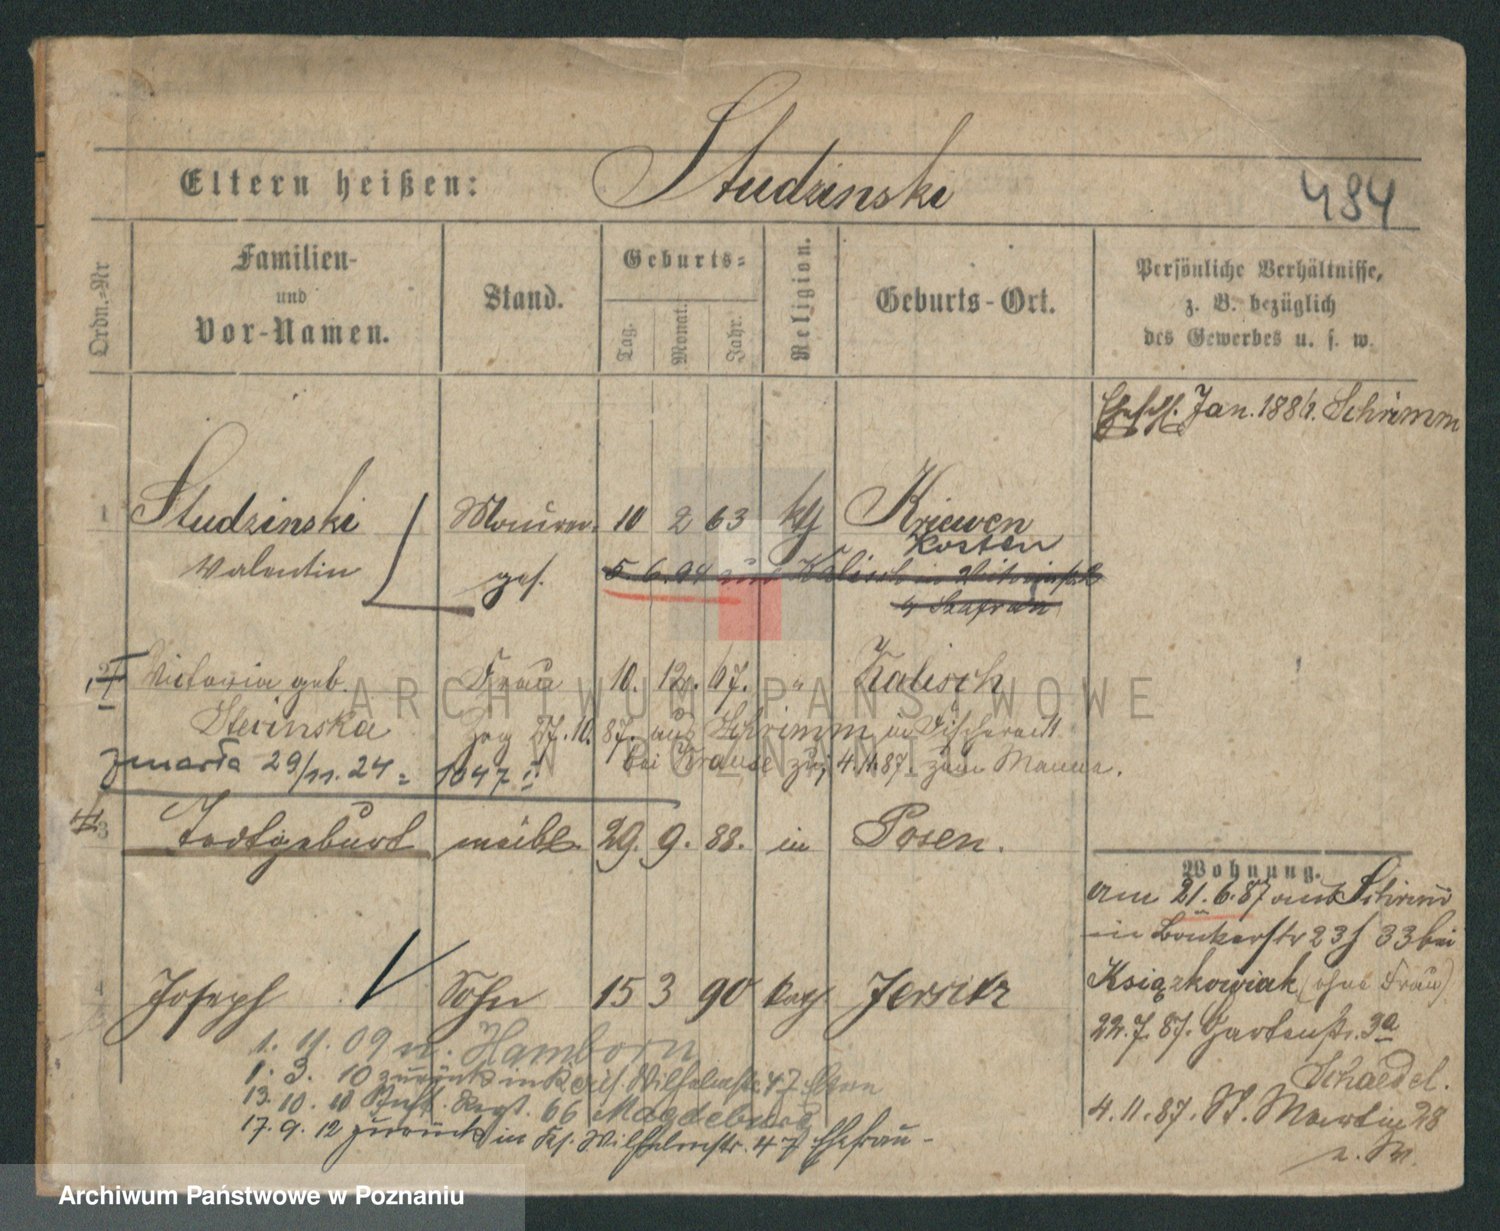 Eltern heißen: Studzinski
484
Ordn.-Nr
Familien-
und
Vor-Namen.
Stand.
Geburts-
Tag.
Monat.
Jahr.
Religion.
Geburts-Ort.
Persönliche Verhältnisse,
z. B. bezüglich
des Gewerbes u. s. w.
Jan. 1886. Schrimm
1 Studzinski Maurer- 10 2 63 Kriewen
Kosten
Valentin ges. 5.6.04 Kalisch
2 Victoria geb. Frau 10. 12. 67. " Kalisch
Sterinska Zog 27.10.87. aus Schrimm
bei Krause zog 4.11.87. zum Manne.
zmarła 29/11.24 = 1047 II
3 Todtgeburt weibl. 29. 9. 88. in Posen.
Wohnung.
am 21.6.87 aus Schrimm
in Bäckerstr 23 33 bei
Książkowiak (ohne Frau)
22.7.87. Gartenstr. 3a
Schaedel.
4.11.87. St. Martin 28
4 Joseph Sohn 15 3 90 kath Jersitz
1. 11. 09 n. Hamborn
1. 3. 10 zurück in Wilhelmstr. 47 Eltern
13. 10. 10 Inft. Regt. 66 Magdeburg
17. 9. 12 zurück in Ks. Wilhelmstr. 47 Ehefrau-
ARCHIWUM PAŃSTWOWE
W POZNANIU
Archiwum Państwowe w Poznaniu